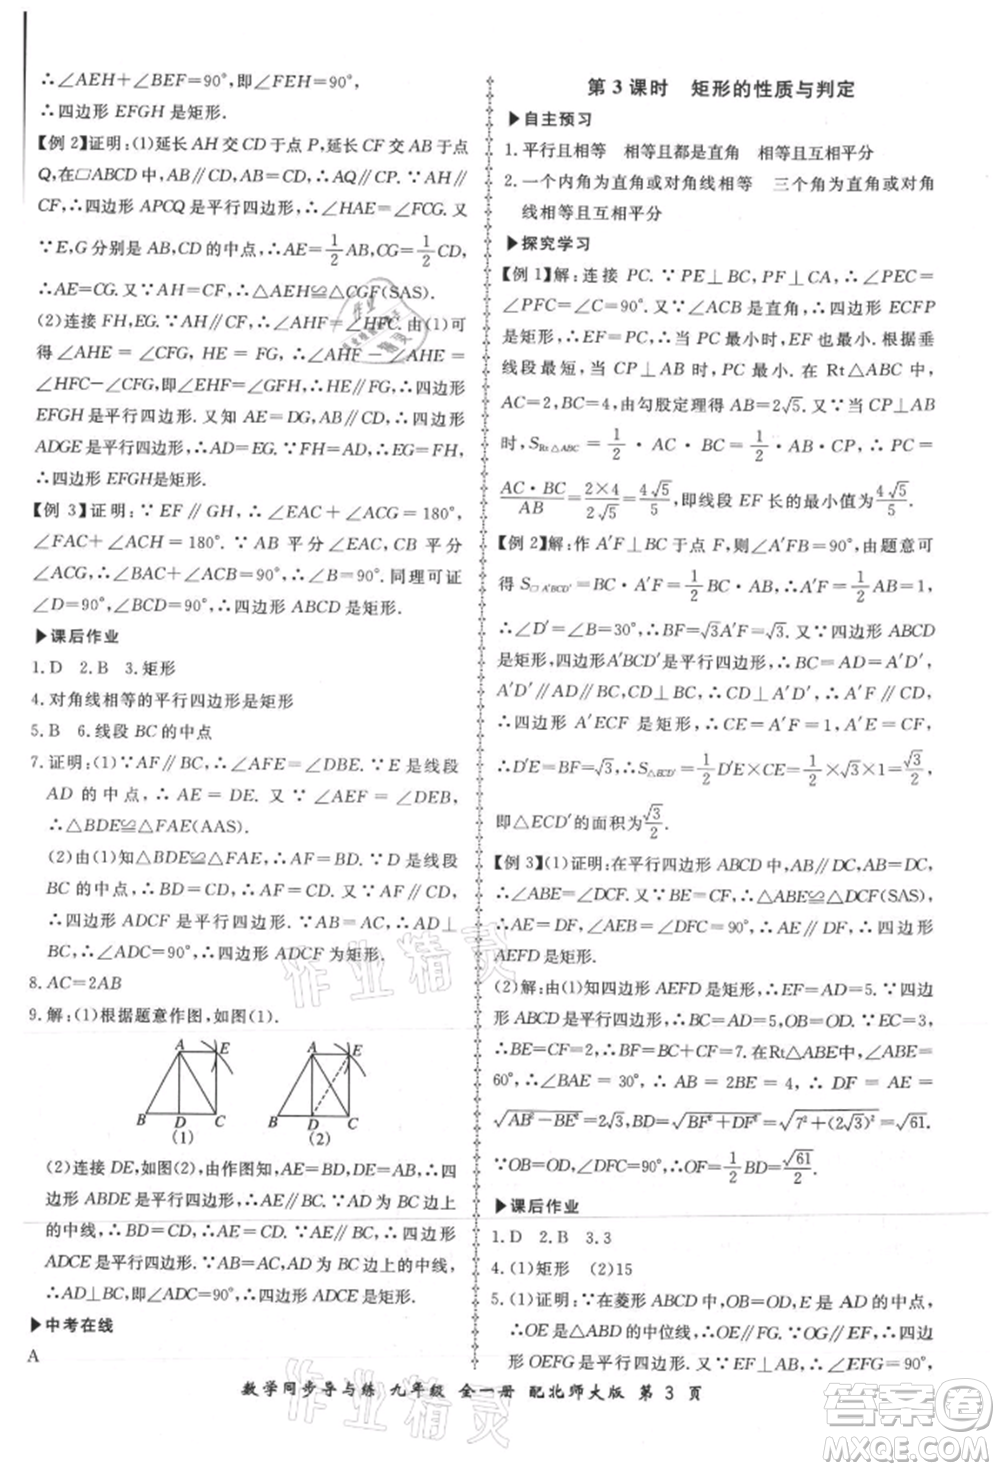 ∴∠AEH+∠BEF=90°,即∠FEH=90°,
∴四边形 EFGH 是矩形.
【例 2】证明:(1)延长 AH 交 CD 于点 P,延长 CF 交 AB 于点
Q,在▱ABCD 中,∴AQ∥PC. 又∵AH∥CF,
∴四边形 APCQ 是平行四边形,∴∠HAE=∠FCG. 又
∵E,G 分别是 AB,CD 的中点,∴AE=1/2AB,CG=1/2CD,
∴AE=CG. 又∵AH=CF,∴△AEH≌△CGF(SAS).
(2)连接 FH,EG.∵AH∥CF,∴∠AHF=∠HFC. 由(1)可
得∠AHE=∠CFG,∴∠AHF-∠AHE=∠HFC-
∠CFG,∴∠EHF=∠HFG,∴EH∥FG,∴四边形
EFGH 是平行四边形. 又知 AE=DG,AB∥CD,∴四边形
ADGE 是平行四边形,∴AD=EG. 又∵AD=FH,∴EG=FH,
∴四边形 EFGH是矩形.
【例 3】证明:∵EF∥GH,∴∠EAC+∠ACG=180°,
∠FAC+∠ACH=180°. ∵AB 平分∠EAC,BC 平分
∠ACG,∴∠BAC+∠ACB=90°,∴∠B=90°. 同理可证
∠D=90°,∠BCD=90°,∴四边形 ABCD 是矩形.
▶课后作业
1. D 2. B 3. 矩形
4. 对角线相等的平行四边形是矩形
5. B 6. 线段 BC 的中点
7. 证明:(1)∵AF∥BC,∴∠AFE=∠DBE.∵E 是线段
AD 的中点,∴AE=DE. 又∵∠AEF=∠DEB,
∴△BDE≌△FAE(AAS).
(2)由(1)知△BDE≌△FAE,∴AF=BD.∵D 是线段
BC 的中点,∴BD=CD,∴AF=CD. 又∵AF∥CD,
∴四边形 ADCF 是平行四边形.∵AB=AC,∴AD⊥
BC,∴∠ADC=90°,∴四边形 ADCF 是矩形.
8. AC=2AB
9. 解:(1)根据题意作图,如图(1).
A E A E
B D C B D C
(1) (2)
(2)连接 DE,如图(2),由作图知,∵AB=DE,∴四
边形 ABDE 是平行四边形,∴AE∥BD.∵AD 是△ABC
的中线,∴BD=CD,∴AE=CD. ∴四边形
ADCE 是平行四边形.∵AB=AC,AD 是△ABC 的中线,
∴AD⊥BC,即∠ADC=90°,∴四边形 ADCE 是矩形.
▶中考在线
A
第 3 课时 矩形的性质与判定
▶自主预习
1. 平行且相等 相等且都是直角 相等且互相平分
2. 一个内角为直角或对角线相等 三个角为直角或对角
线相等且互相平分
▶探究学习
【例 1】解:连接 PC.∵PE⊥BC,PF⊥CA,∴∠PEC=
∠PFC=∠C=90°. 又∵∠ACB 是直角,∴四边形 ECFP
是矩形,∴EF=PC,∴PC 的最小值即为 EF 的最小值. 根据垂
线段最短,当 CP⊥AB 时,PC 最小. 在 Rt△ABC 中,
AC=2,BC=4,由勾股定理得 AB=2√5. 又∵当 CP⊥AB
时,S_Rt△ABC=1/2·AC·BC=1/2·AB·CP,∴PC=
AC·BC/AB=2×4/2√5=4√5/5,即线段 EF 长的最小值为4√5/5.
【例 2】解:作 A′F⊥BC 于点 F,则∠A′FB=90°,由题意可
得 S_▱A′BCD′=BC·A′F=1/2BC·AB,∴A′F=1/2AB=1,
∴∠D′=∠B=30°,∴BF=√3A′F=√3. 又∵四边形 ABCD
是矩形,∴∠BCD=90°,BC=AD=A′D′,
A′D′∥AD∥BC,∴∠D′EC=90°,
∴四边形 A′ECF 是矩形,∴CE=A′F=1,A′E=CF,
∴D′E=BF=√3,∴S_△ECD′=1/2D′E×CE=1/2×√3×1=√3/2,
即△ECD′的面积为√3/2.
【例 3】(1)证明:在平行四边形 ABCD 中,∵AB∥DC,AB=DC,
∴∠ABE=∠DCF.∵BE=CF,∴△ABE≌△DCF(SAS),
∴AE=DF,∠AEB=∠DFC=90°,∴AE∥DF,∴四边形
AEFD 是矩形.
(2)解:由(1)知四边形 AEFD 是矩形,∴EF=AD=5. ∵四边形
ABCD 是平行四边形,∴OB=OD.∵EC=3,
∴BE=CF=2,∴BF=7. 在Rt△ABE 中,∠ABE=
60°,∴∠BAE=30°,∴AB=2BE=4,∴DF=AE=
√AB²-BE²=2√3,∴BD=√BF²+DF²=√7²+(2√3)²=√61.
∵OB=OD,∠DFB=90°,∴OF=1/2BD=√61/2.
▶课后作业
1. D 2. B 3. 3
4. (1)矩形 (2)15
5. (1)证明:∵在菱形 ABCD 中,OB=OD,E 是 AD 的中点,
∴OE 是△ABD 的中位线,∴OE∥FG.∵OG∥EF,∴四边
形 OEFG 是平行四边形.∵EF⊥AB,∴∠EFG=90°,
数学同步导与练 九年级 全一册 配北师大版 第 3 页
作业精灵
作业精灵
答案圈
MXQE.COM